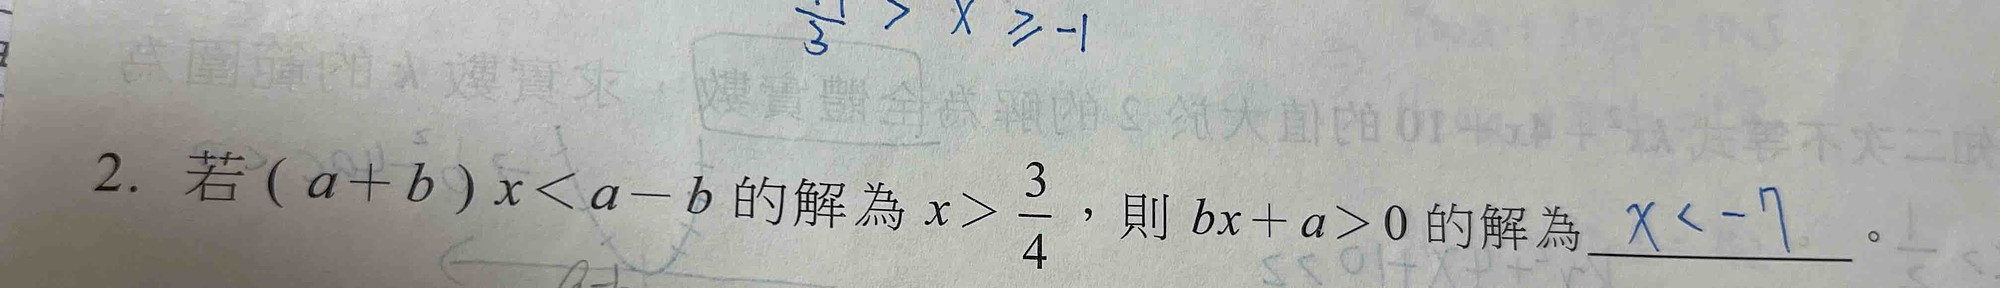 > x ≥ -1
2. 若 ( a + b ) x < a - b 的解為 x > 3/4 ，則 bx + a > 0 的解為 x < -7 。